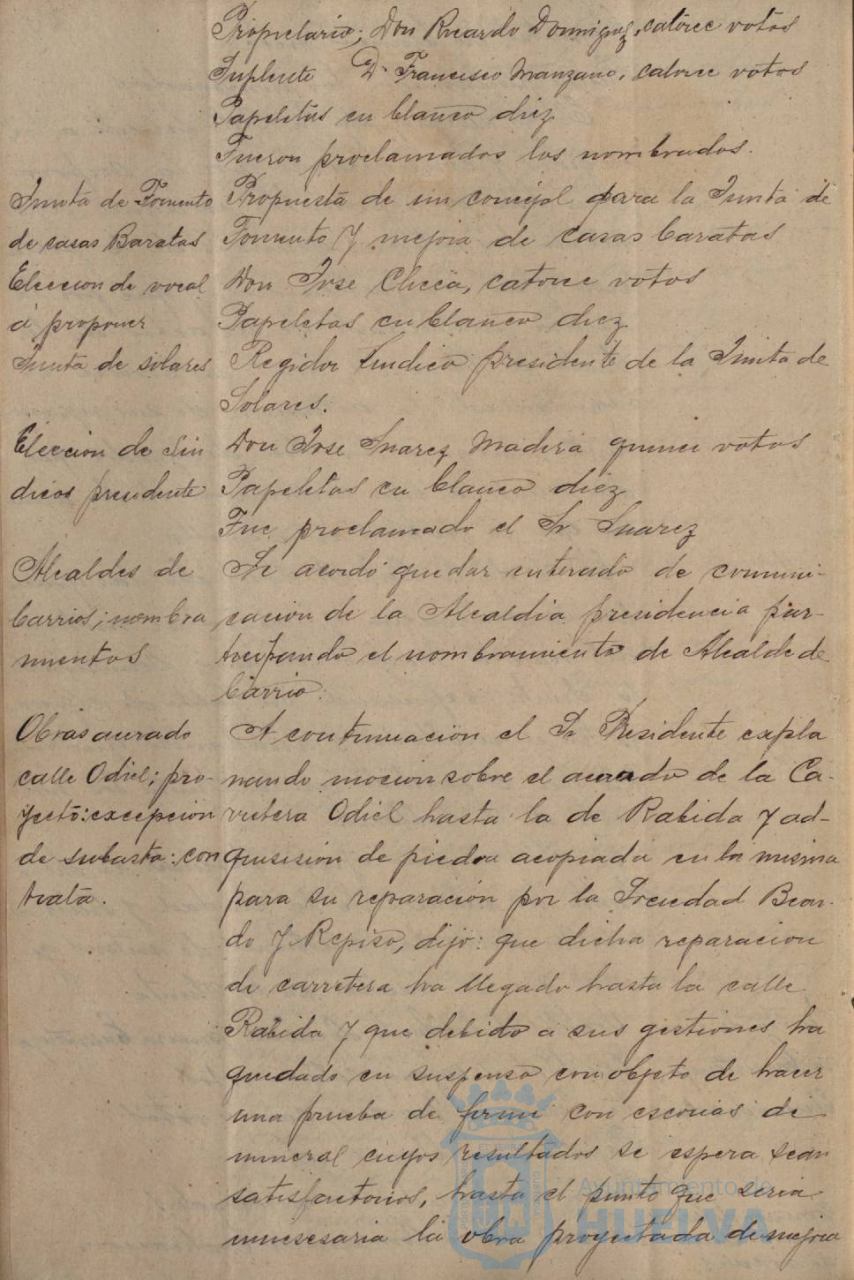 Propietario; Don Ricardo Dominguez, catorce votos
Suplente D. Francisco Manzano, catorce votos
Papeletas en blanco diez
Fueron proclamados los nombrados.
Junta de Fomento
de casas Baratas
Eleccion de vocal
á proponer
Propuesta de un concejal para la Junta de
Fomento y mejora de casas baratas
Don Jose Checa, catorce votos
Papeletas en blanco diez
Junta de solares
Regidor Sindico presidente de la Junta de
Solares.
Eleccion de Sin
dicos presidente
Don Jose Suarez Madera quince votos
Papeletas en blanco diez
Fue proclamado el Sr Suarez
Alcaldes de
barrios; nombra
mientos
Se acordó quedar enterado de comuni-
cación de la Alcaldia presidencia par-
ticipando el nombramiento de Alcalde de
barrio.
Obras acerado
calle Odiel; pro-
yecto: excepción
de subasta: con
trata.
A continuación el Sr Presidente expla
nando mocion sobre el acerado de la Ca-
rretera Odiel hasta la de Rabida y ad-
quisisión de piedra acopiada en la misma
para su reparación por la Sociedad
y Repiso, dijo: que dicha reparacion
de carretera ha llegado hasta la calle
Rabida y que debido a sus gestiones ha
quedado en suspenso con objeto de hacer
una prueba de firme con escorias de
mineral cuyos resultados se espera sean
satisfactorios, hasta el punto que seria
innecesaria la obra proyectada de mejora
Ayuntamiento de
HUELVA